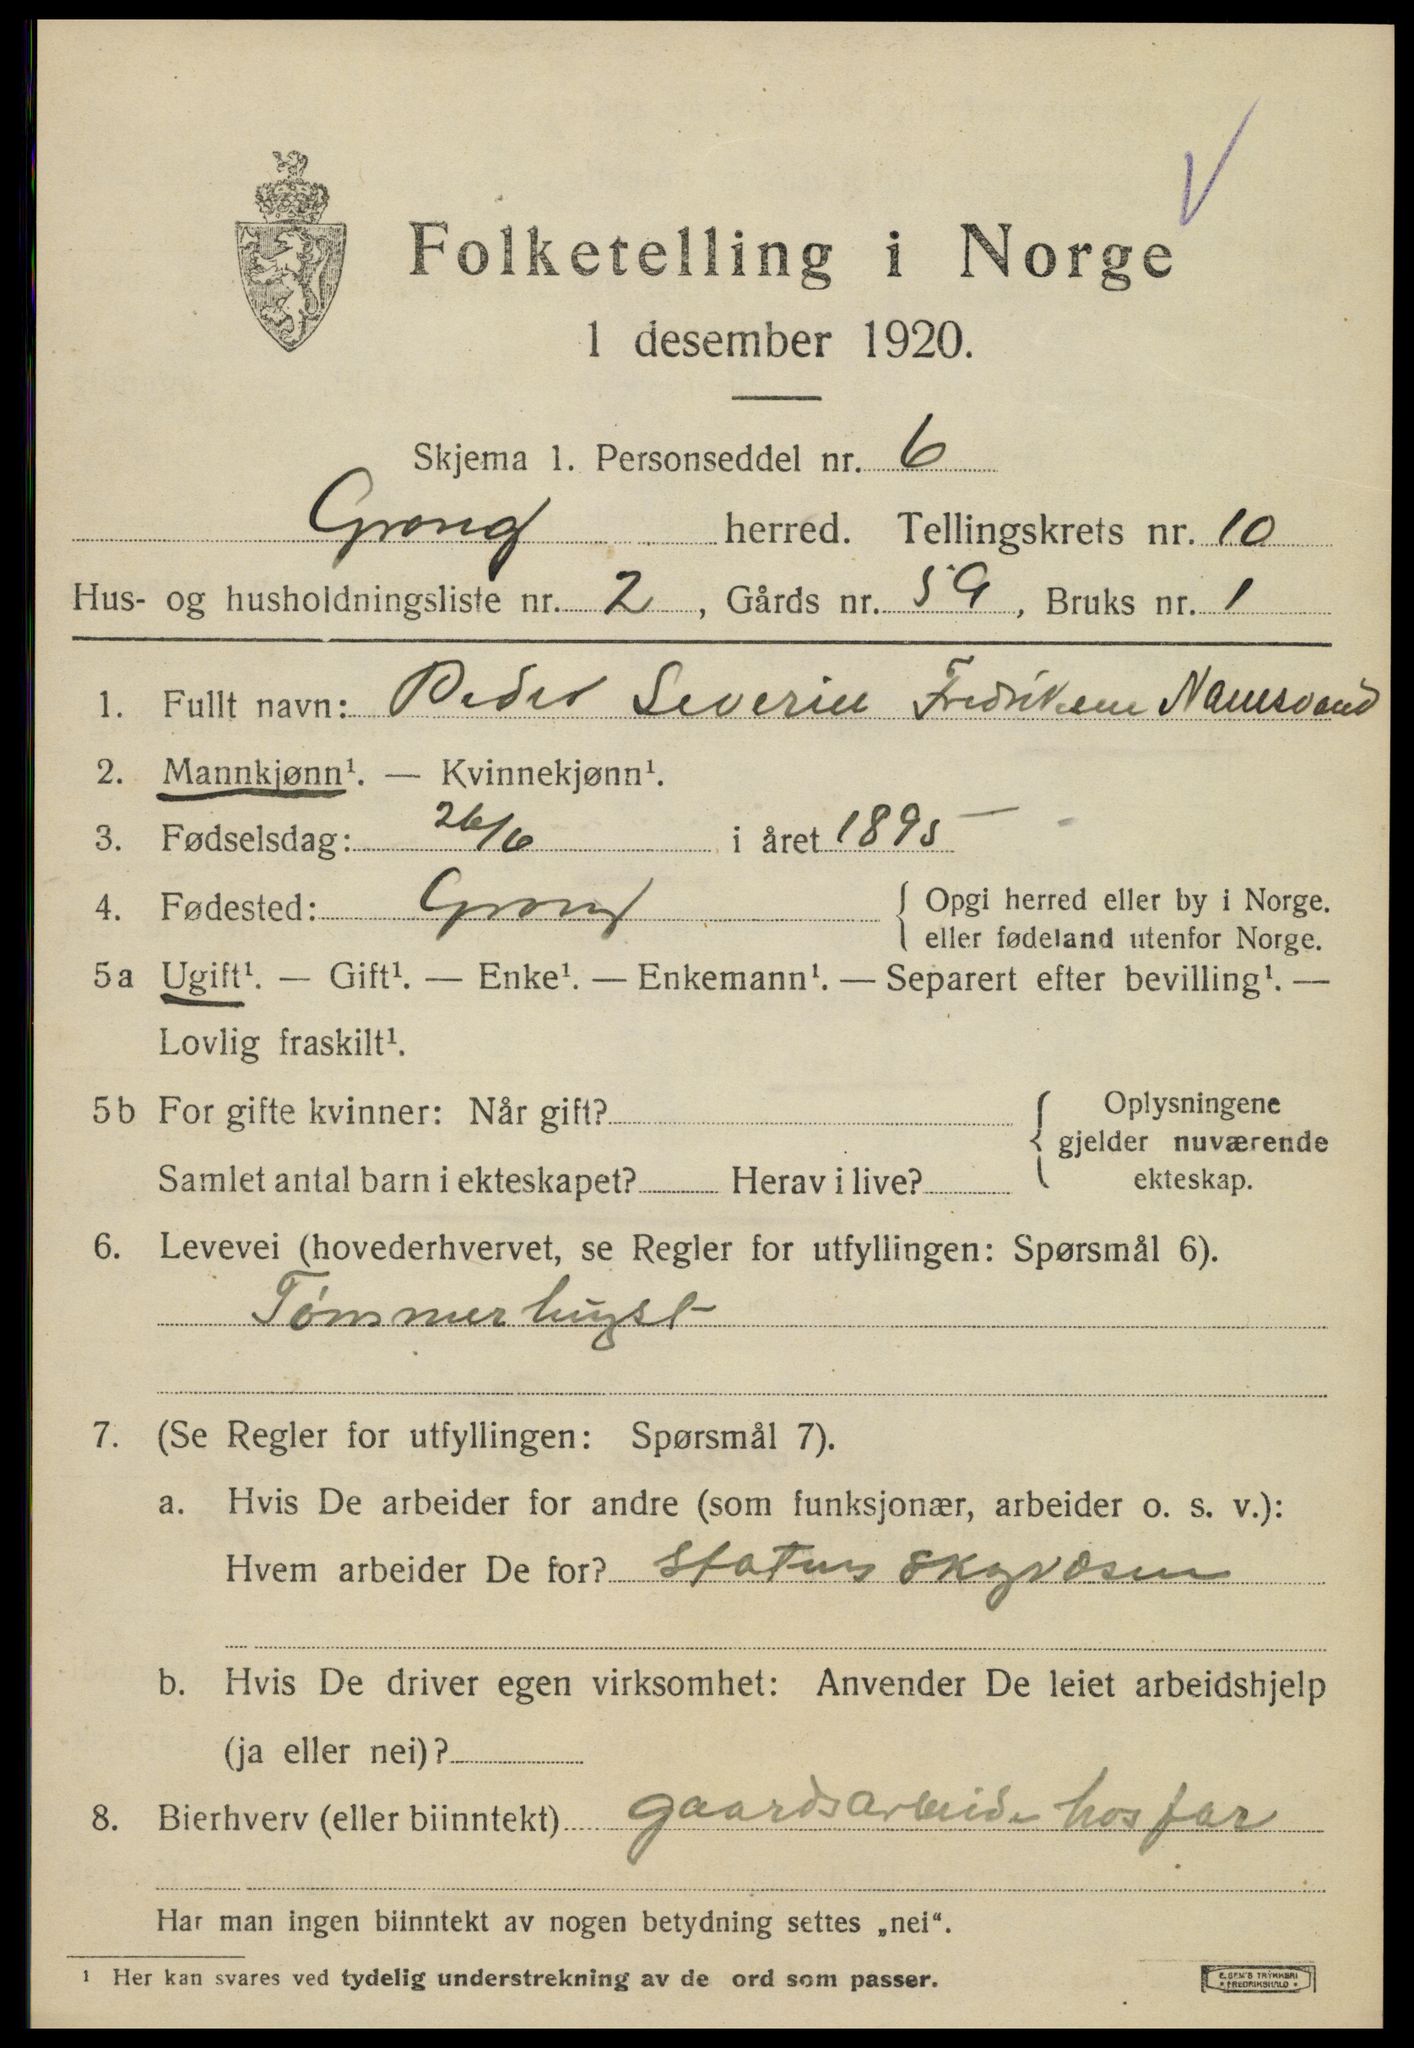 Folketelling i Norge
1 desember 1920.
Skjema 1. Personseddel nr. 6
Grong herred. Tellingskrets nr. 10
Hus- og husholdningsliste nr. 2, Gårds nr. 59, Bruks nr. 1
1. Fullt navn: Peder Severin Fredriksen Namsvand
2. Mannkjønn¹. — Kvinnekjønn¹.
3. Fødselsdag: 26/6 i året 1895
4. Fødested: Grong { Opgi herred eller by i Norge.
eller fødeland utenfor Norge.
5a Ugift¹. — Gift¹. — Enke¹. — Enkemann¹. — Separert efter bevilling¹. —
Lovlig fraskilt¹.
5b For gifte kvinner: Når gift? { Oplysningene
gjelder nuværende
Samlet antal barn i ekteskapet? Herav i live? ekteskap.
6. Levevei (hovederhvervet, se Regler for utfyllingen: Spørsmål 6).
Tømmerhugst
7. (Se Regler for utfyllingen: Spørsmål 7).
a. Hvis De arbeider for andre (som funksjonær, arbeider o. s. v.):
Hvem arbeider De for? Statens skogvæsen
b. Hvis De driver egen virksomhet: Anvender De leiet arbeidshjelp
(ja eller nei)?
8. Bierhverv (eller biinntekt) gaardsarbeide hos far
Har man ingen biinntekt av nogen betydning settes „nei“.
¹ Her kan svares ved tydelig understrekning av de ord som passer.
TRYKKERI
FREDRIKSHALD